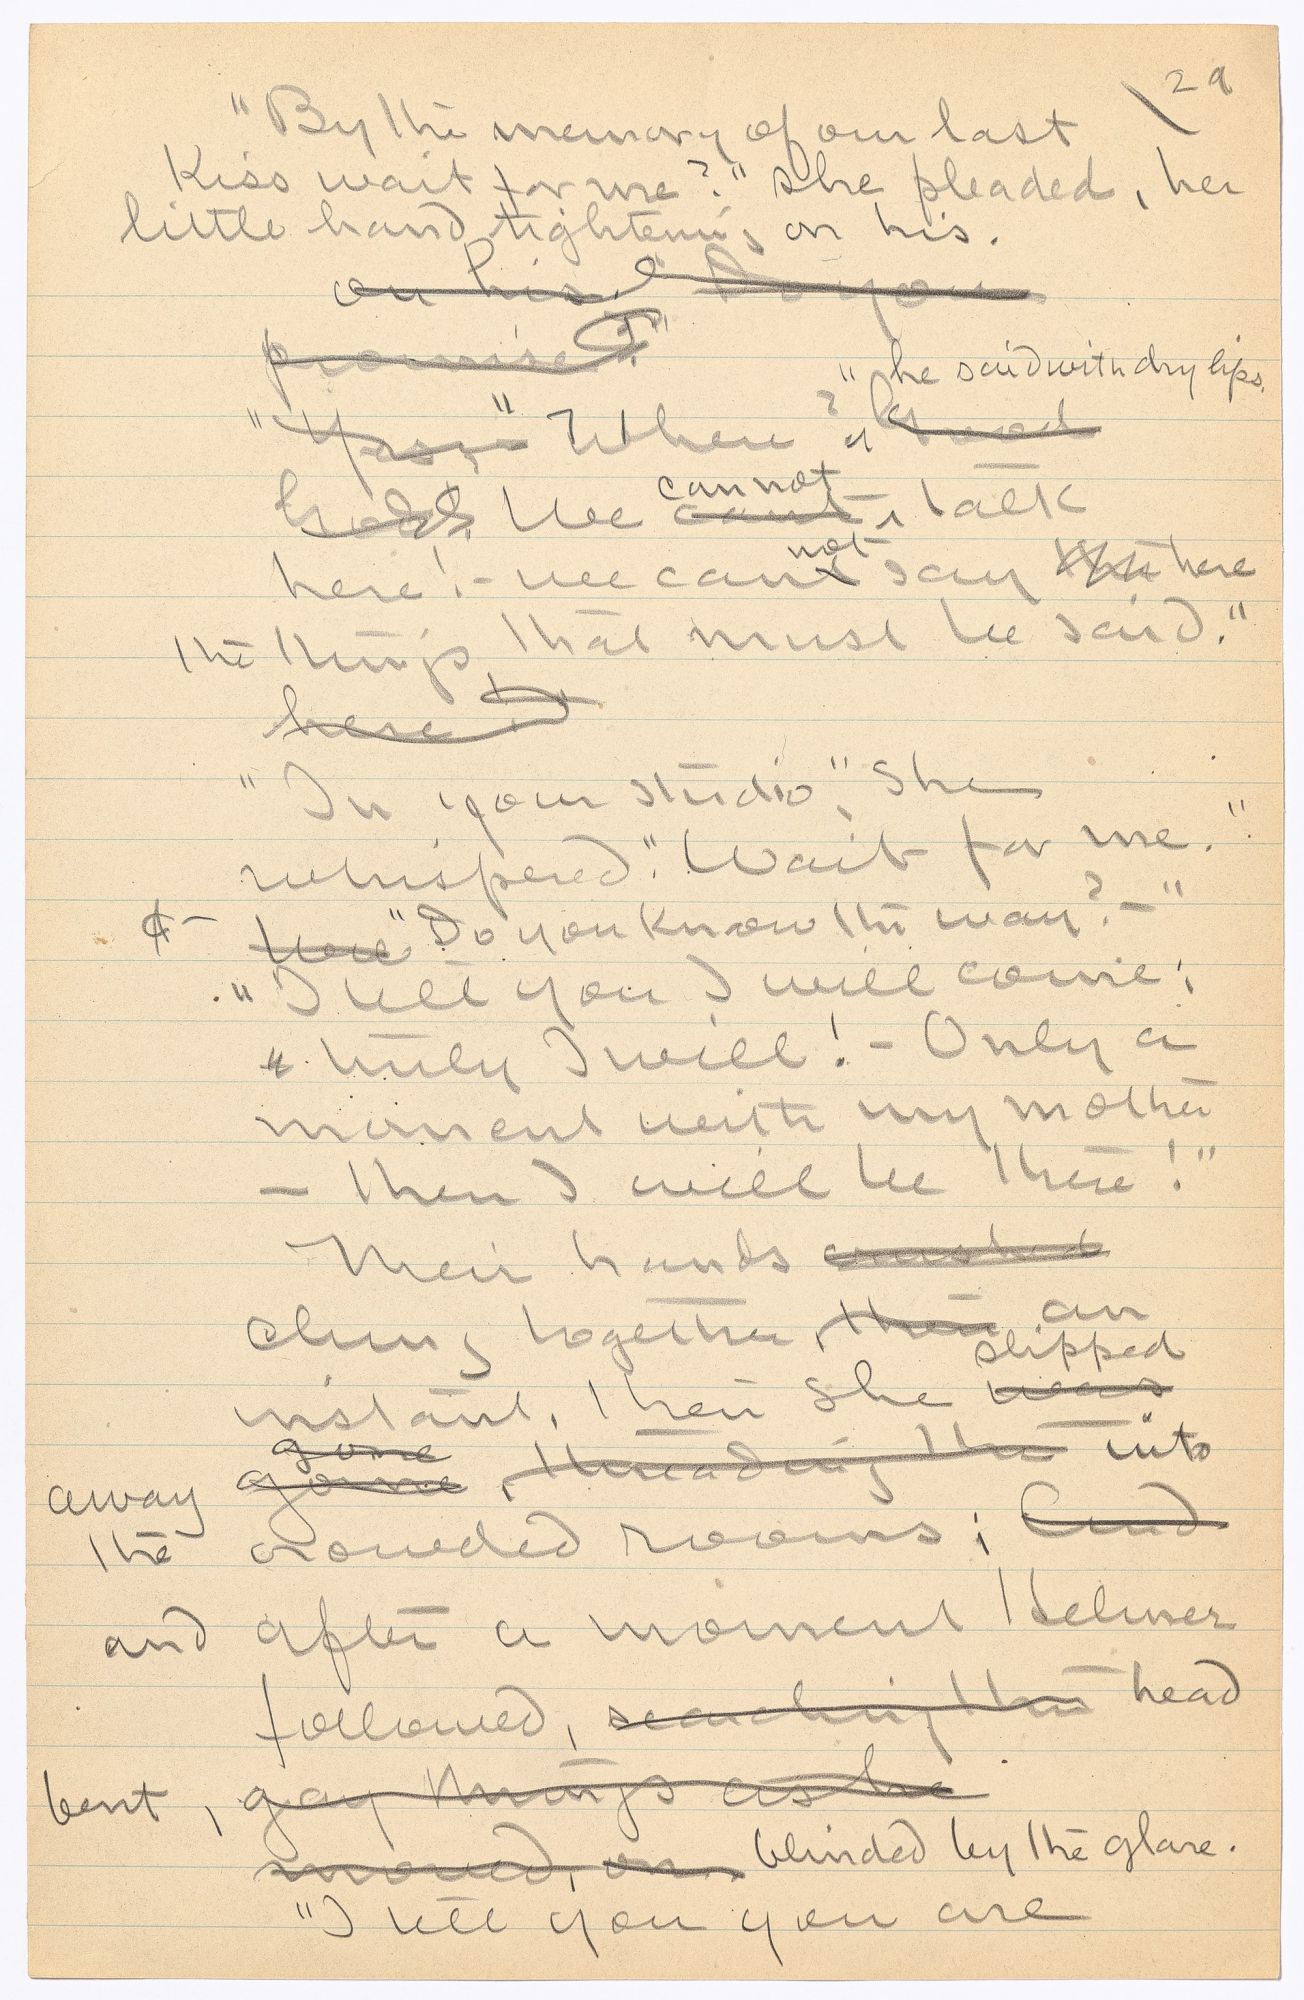 29
"By the memory of our last
Kiss wait for me?" she pleaded, her
little hand tightening on his.
on his. "Do you
promise?"
he said with dry lips.
"Yes." "Where?" Good
God, We can't cannot talk
here! - we cannot say the here
the things that must be said."
here."
"In your studio", she
whispered. "Wait for me."
here" "Do you Know the way? - "
"I tell you I will come;
truly I will! - Only a
moment with my mother
- then I will be there!"
Their hands crushed
clung together, then an
instant, then she was slipped
away gone gone, threading the into
the crowded rooms; And
and after a moment Helmer
followed, searching the head
bent, gay things as he
moved, on blinded by the glare.
"I tell you you are